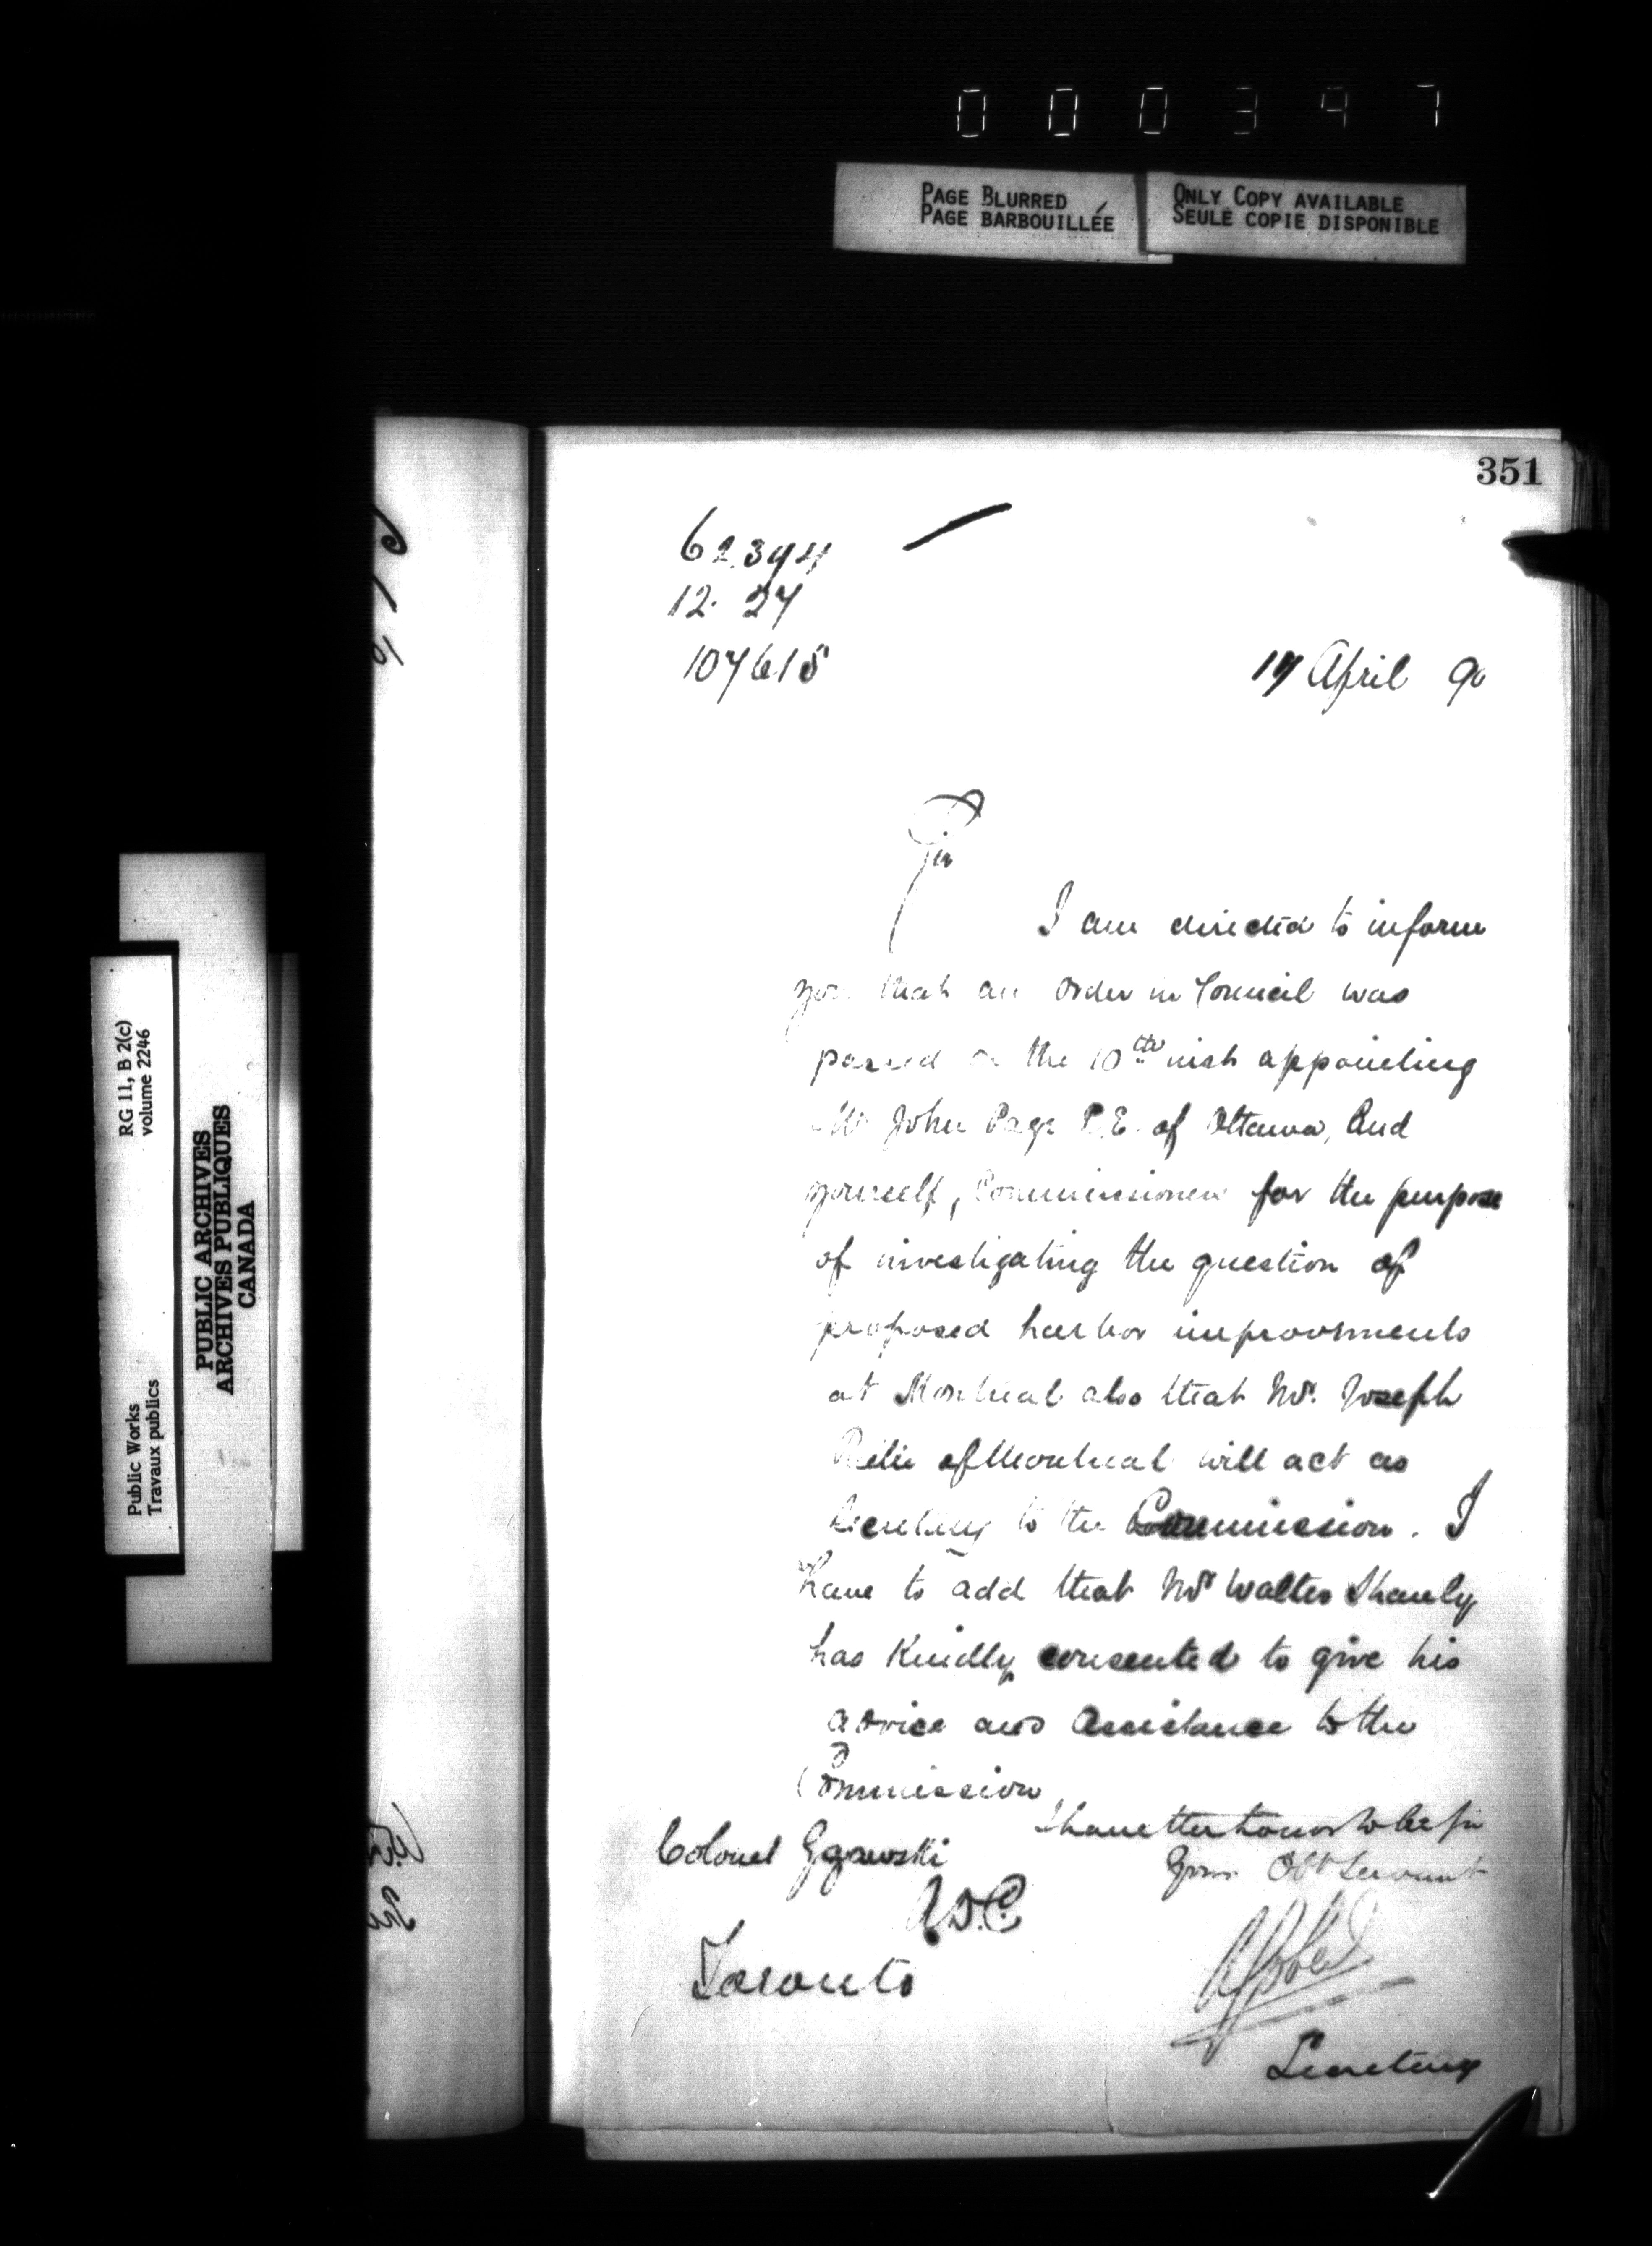 000397
PAGE BLURRED
PAGE BARBOUILLÉE
ONLY COPY AVAILABLE
SEULE COPIE DISPONIBLE
351
62394
12. 27
107615
17 April 90
Sir
I am directed to inform
you that an Order in Council was
passed on the 10th inst appointing
Mr John Page C.E. of Ottawa, And
yourself, Commissioners for the purpose
of investigating the question of
proposed harbor improvements
at Montreal also that Mr. Joseph
of Montreal will act as
Secretary to the Commission. I
have to add that Mr Walter Shanly
has Kindly consented to give his
advice and assistance to the
Commission
I have the honor to be Sir
Your Obt Servant
Colonel Gzowski
A.D.C.
Toronto
Secretary
Public Works
Travaux publics
RG 11, B 2(c)
volume 2246
PUBLIC ARCHIVES
ARCHIVES PUBLIQUES
CANADA